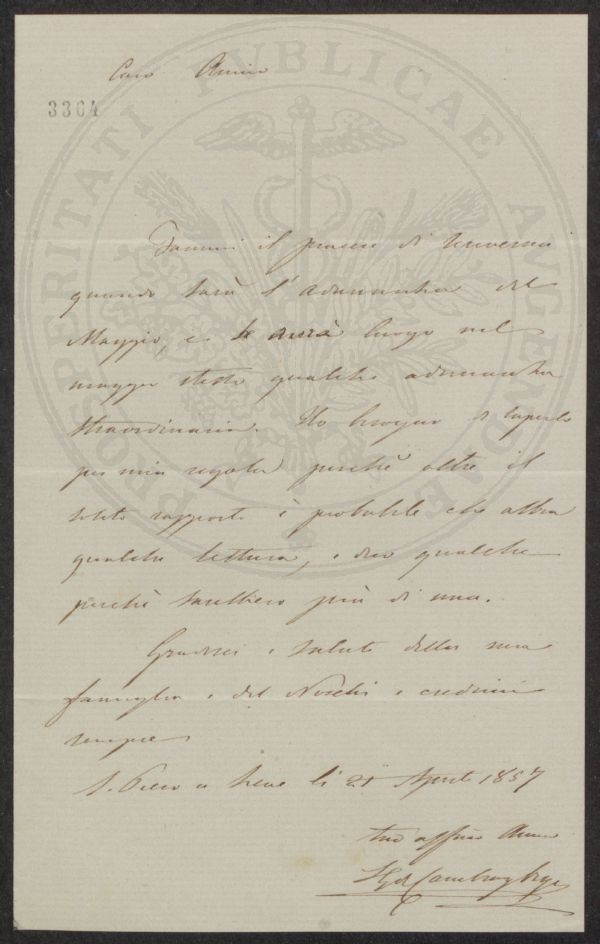 Caro Amico
3364
PROSPERITATI PVBLICAE AVGENDAE
Fammi il piacere di scrivermi
quando sarà l'adunanza del
Maggio, e se avrà luogo nel
maggio stesso qualche adunanza
straordinaria. Ho bisogno di saperlo
per mia regola perchè oltre il
solito rapporto è probabile che abbia
qualche lettura, e dico qualche
perchè sarebbero più di una.
Gradisci i saluti della mia
famiglia e del e credimi
sempre
S. Piero a Sieve li 21 Aprile 1857
tuo affmo Amico